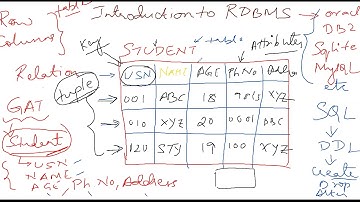 Row table
Columns
Introduction to RDBMS
Key
STUDENT → table
Attributes
Relation
USN NAME AGE Ph.No Addr
tuple
001 ABC 18 XYZ
010 XYZ 20 0001
120 STY 19 100 XYZ
GAT
Student
USN
NAME
AGE, Ph.No, Address
oracle
DB2
Sqlite
MySQL
etc
SQL
DDL
Create
Drop